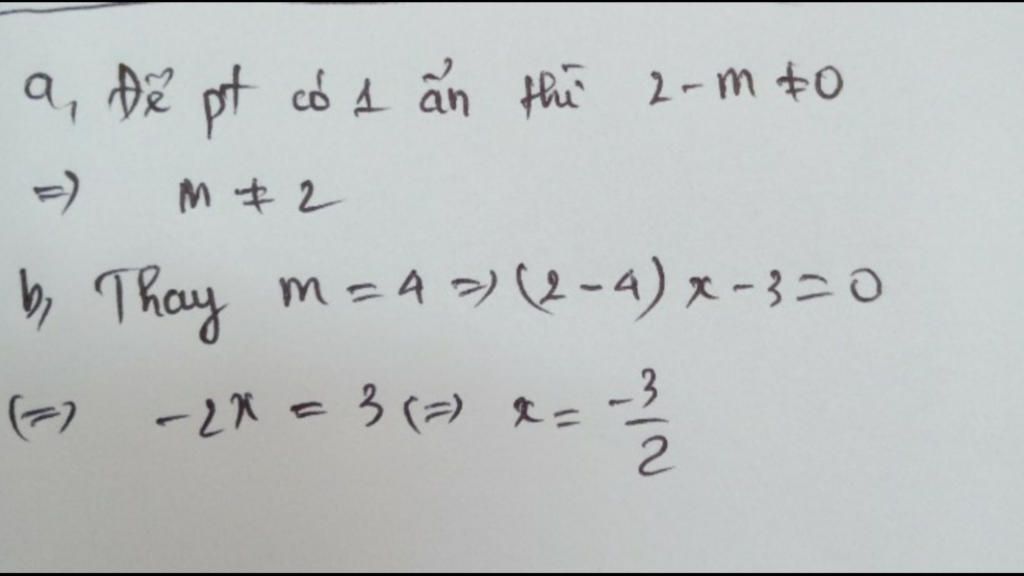 a, Để pt có 1 ẩn thì 2 - m ≠ 0
=> m ≠ 2
b, Thay m = 4 => (2 - 4) x - 3 = 0
(=) -2x = 3 (=) x = -3/2